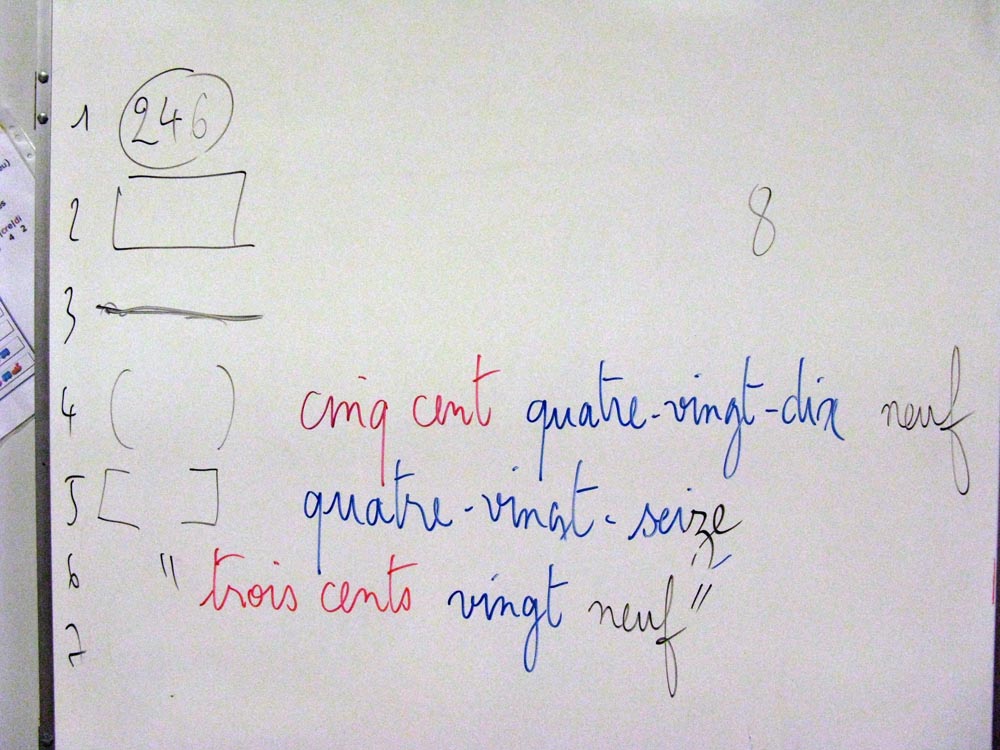 1 246
2
8
3
4 ( ) cinq cent quatre-vingt-dix neuf
5 [ ] quatre-vingt-seize
6 " trois cents vingt neuf "
7